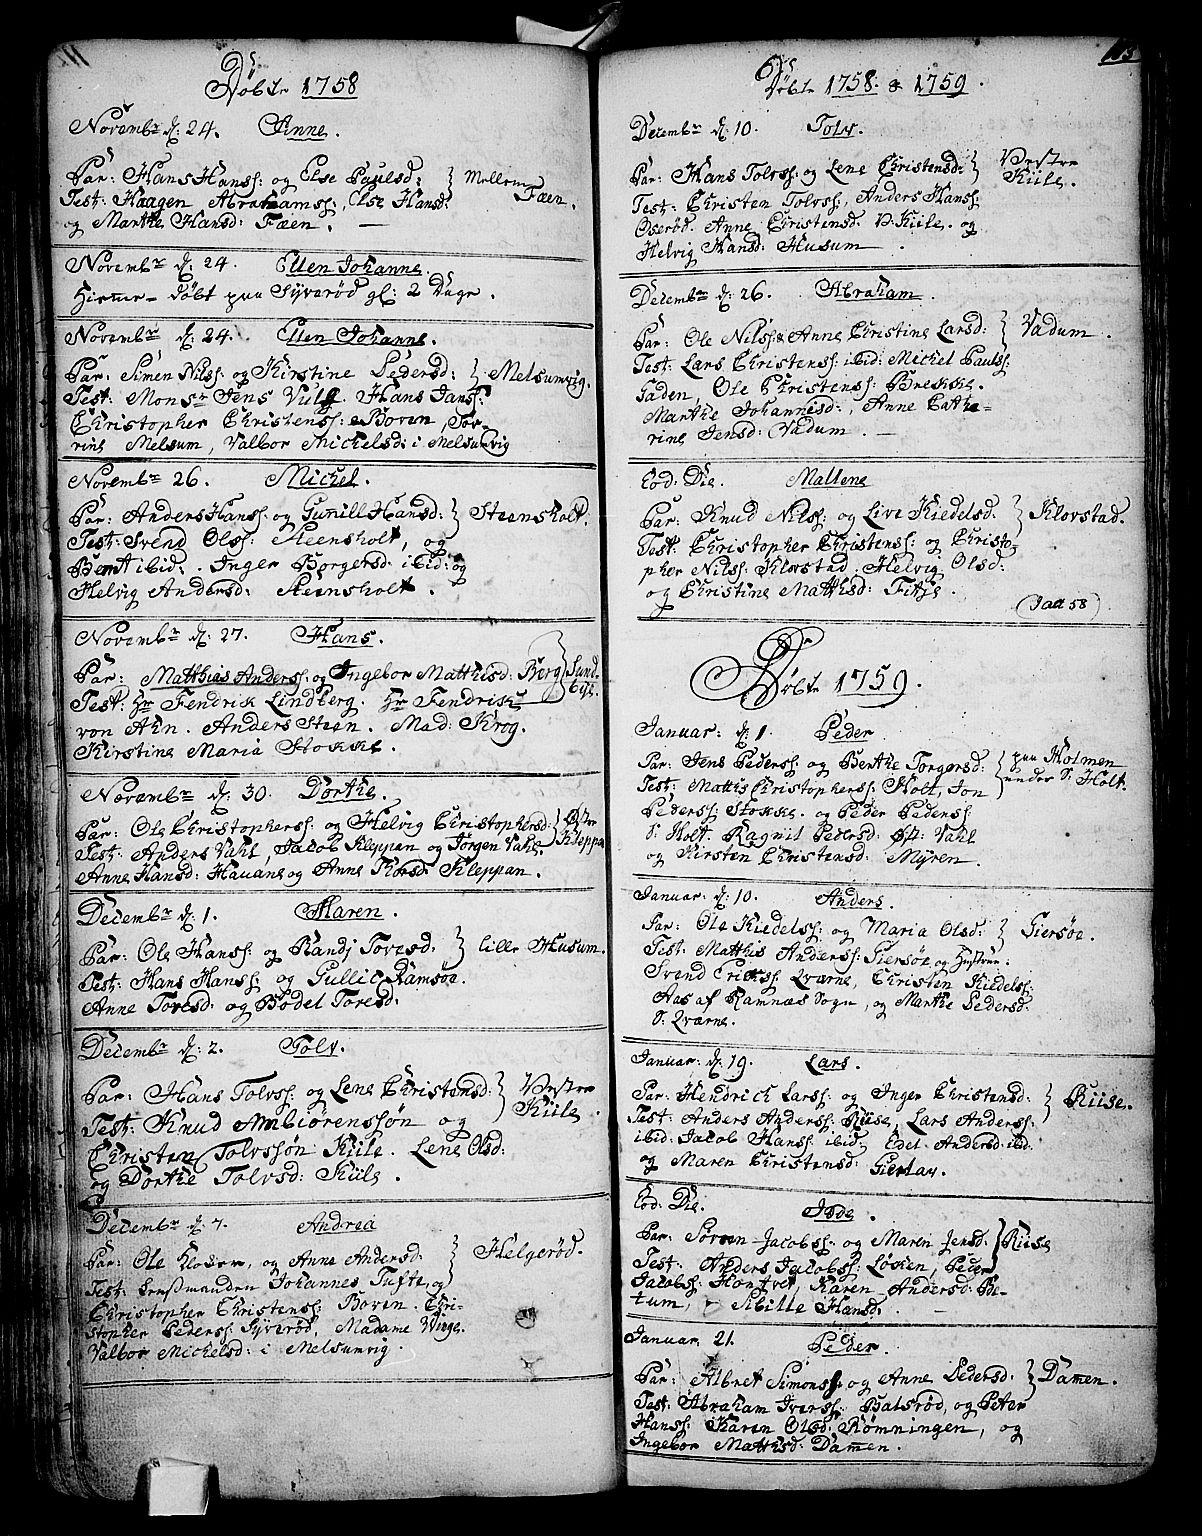 Døbte 1758
Novembr d: 24. Anne.
Par: Hans Hanss: og Else Paulsd: } Mellem
Test: Haagen Abrahamss, Else Hansd: Fæen.
og Marthe Hansd: Fæen.
Novembr d: 24. Ellen Johanne.
Hiemme-døbt paa Syverød gl: 2 Dage.
Novembr d: 24. Ellen Johanne.
Par: Simen Nilss: og Kirstine Pedersd: } Melsumvig.
Test: Monsr Jens Vulf. Hans Janss:
Christopher Christenss: Boven, Tor-
rine Melsum, Valbor Michelsd: i Melsumvig
Novembr 26. Michel.
Par: Anders Hanss: og Gunill Hansd: } Steensholt.
Test: Svend Olss: Steensholt, og
Bernt ibid: . Inger Borgersd: ibid: og
Helvig Andersd: Steensholt.
Novembr d: 27. Hans.
Par: Matthias Anderss: og Ingebor Matthisd: Berg } Sund-
bye.
Test: Hr Fendrik Lindberg. Hr Fendrik
von Ahn. Anders Steen. Mad: Krog.
Kirstine Maria Stokke.
Novembr d: 30. Dorthe.
Par: Ole Christopherss: og Helvig Christophersd: } Østre
Test: Anders Vahl, Jacob Kleppan og Jørgen Vahl. Kleppan
Anne Hansd: Hauane og Anne Thorsd: Kleppan.
Decembr d: 1. Maren.
Par: Ole Hanss: og Randj Toresd: } lille Husum.
Test: Hans Hanss: og Gullic Ramsøe.
Anne Toresd: og Bodel Toresd:
Decembr d: 2. Tolv.
Par: Hans Tolvss: og Lene Christensd: } Vestre
Test: Knud Ambiørenssøn og Kiile.
Christen Tolvssøn Kiile. Lene Olsd:
og Dorthe Tolvsd: Kiile.
Decembr d: 7. Andrea
Par: Ole Klover, og Anne Andersd: } Helgerød.
Test: Lensmanden Johannes Tufte, og
Christopher Christenss: Boven. Chri-
stopher Pederss: Syverød, Madame Winge.
Valbor Michelsd: i Melsumvig.
113
Døbte 1758. & 1759.
Decembr d: 10. Tolv.
Par: Hans Tolvss: og Lene Christensd: } Vestre
Kiile.
Test: Christen Tolvss:, Anders Hanss:
Oserød. Anne Christensd: V: Kiile. og
Helvig Hansd: Husum.
Decembr d: 26. Abraham.
Par: Ole Nilss: & Anne Christine Larsd: } Vadum.
Test: Lars Christenss: ibid: Michel Paulss:
Gaden, Ole Christenss: Brekke.
Marthe Johannisd:, Anne Cathe-
rine Jensd: Vadum.
Eod: Die. Mallene
Par: Knud Nilss: og Live Kiedelsd. } Klovstad.
Test: Christopher Christenss: og Christo-
pher Nilss: Klovstad. Helvig Olsd:
og Christine Matthisd: Fitje.
(Jatt 58)
Døbte 1759.
Januar: d: 1. Peder
Par: Jens Pederss: og Berthe Torgersd: } paa Holmen
under S: Holt.
Test: Matthis Christopherss: Holt, Jon
Pederss: Stokke. og Peder Pederss:
S: Holt. Ragnil Pedersd: Øst: Vahl
og Kirsten Christensd: Myren.
Januar: d: 10. Anders.
Par: Ole Kiedelss: og Maria Olsd: } Giersøe.
Test: Matthis Anderss: Giersøe og Hustrue:
Svend Erichss: Qværne, Christen Kiedelss:
Aas af Ramnæs Sogn, og Marthe Pedersd:
S: Qværne.
Januar: d: 19. Lars.
Par: Hendrich Larss: og Inger Christensd: } Riise.
Test: Anders Anderss: Riise, Lars Anderss:
ibid: Jacob Hanss: ibid: Edel Andersd: ibid:
og Maren Christensd: Giertav.
Eod: Die.
Par: Søren Jacobss: og Maren Jensd: } Riise
Test: Anders Jacobss: Løken, Peder
Jacobss: Hontvet, Karen Andersd: Be-
tum, Sibille Hansd:.
Januar. 21. Peder.
Par: Albret Simonss: og Anne Pedersd: } Damen.
Test: Abraham Iverss: Balsrød, og Peter
Hanss: Karen Olsd: Rømningen, og
Ingebor Matthisd: Damen.